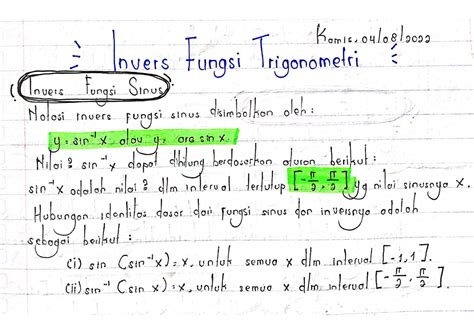 Kamis, 04/08/2022
Invers Fungsi Trigonometri
Invers Fungsi Sinus
Notasi invers fungsi sinus disimbolkan oleh:
y = sin⁻¹ x atau y = arc sin x.
Nilai² sin⁻¹ x dapat dihitung berdasarkan aturan berikut:
sin⁻¹ x adalah nilai² dlm interval tertutup [-π/2, π/2] yg nilai sinusnya x.
Hubungan identitas dasar dari fungsi sinus dan inversnya adalah
sebagai berikut:
(i) sin (sin⁻¹ x) = x, untuk semua x dlm interval [-1, 1].
(ii) sin⁻¹ (sin x) = x, untuk semua x dlm interval [-π/2, π/2].